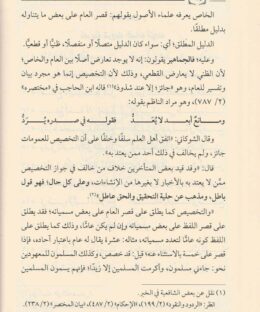 الخاص يعرفه علماء الأصول بقولهم: قصر العام على بعض ما يتناوله
بدليل مطلقًا.
الدليل المطلق؛ أي: سواء كان الدليل متصلًا أو منفصلًا، ظنيًا أو قطعيًا.
وعليه؛ فالجماهير يقولون: إنه لا يوجد تعارض أصلًا بين العام والخاص؛
لأن الظني لا يعارض القطعي، وذلك لأن التخصيص إنما هو مجرد بيان
وتفسير للعام، وهو جائز؛ إلا عند شذوذ(١) قاله ابن الحاجب في «مختصره»
(٢/ ٧٨٧)، وهو مراد الناظم بقوله:
ومانع أبعد لا يُعَدُّ فقوله في صدره يُرَدُّ
وقال الشوكاني: «اتفق أهل العلم سلفًا وخلفًا على أن التخصيص للعمومات
جائز، ولم يخالف في ذلك أحد ممن يعتد به».
قال: «وقد قيد بعض المتأخرين خلاف من خالف في جواز التخصيص
ممَّن لا يعتد به بالأخبار لا بغيرها من الإنشاءات، وعلى كل حال؛ فهو قول
باطل، ومذهب عن حلية التحقيق والحق عاطل»(٢).
«والتخصيص كما يطلق على قصر العام على بعض مسمياته» فقد يطلق
على قصر اللفظ على بعض مسمياته وإن لم يكن عامًّا، وذلك كما يطلق على
اللفظ كونه عامًّا لتعدد مسمياته، مثاله: عشرة يقال له عام باعتبار آحاده، فإذا
قصر على خمسة بالاستثناء عنه؛ قد خصص، وكذلك المسلمون للمعهودين
نحو: جاءني مسلمون، وأكرمت المسلمين إلا زيدًا؛ فإنهم يسمون المسلمين
(١) نقل عن بعض الشافعية في الخبر.
انظر: «الردود والنقود» (٢/ ١٩٩)، «الإحكام» (٢/ ٤٨٧)، «بيان المختصر» (٢/ ٢٣٨).